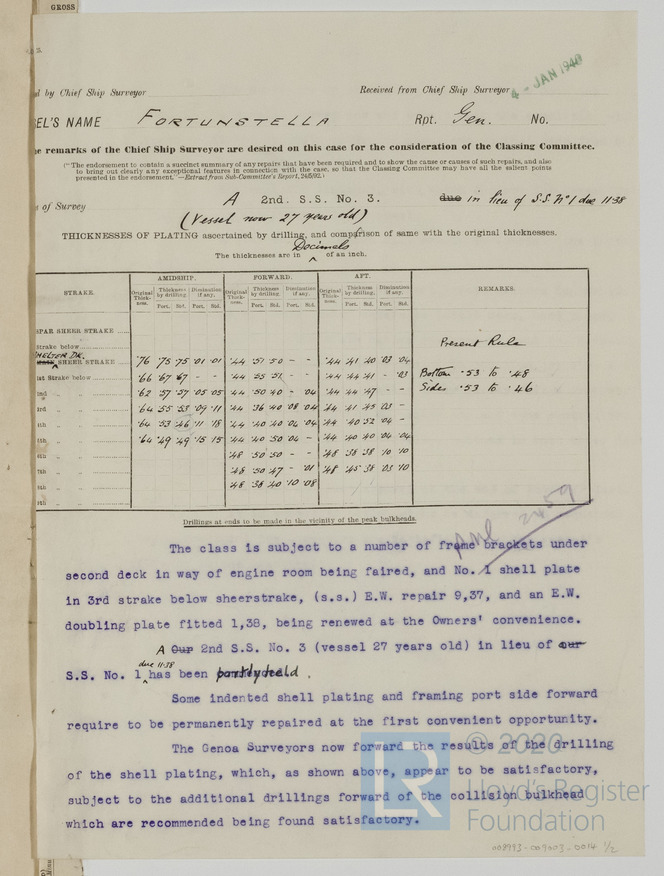 GROSS
d by Chief Ship Surveyor
Received from Chief Ship Surveyor
4 - JAN 1940
EL'S NAME FORTUNSTELLA Rpt. Gen. No.
e remarks of the Chief Ship Surveyor are desired on this case for the consideration of the Classing Committee.
("The endorsement to contain a succinct summary of any repairs that have been required and to show the cause or causes of such repairs, and also
to bring out clearly any exceptional features in connection with the case, so that the Classing Committee may have all the salient points
presented in the endorsement."—Extract from Sub-Committee's Report, 24/5/92.)
s of Survey A 2nd. S.S. No. 3. due in lieu of S.S. No 1 due 11·38
(Vessel now 27 years old)
THICKNESSES OF PLATING ascertained by drilling, and comparison of same with the original thicknesses.
Decimals
The thicknesses are in ^ of an inch.
STRAKE. AMIDSHIP. FORWARD. AFT. REMARKS.
Original Thickness. Thickness by drilling. Diminution if any. Original Thickness. Thickness by drilling. Diminution if any. Original Thickness. Thickness by drilling. Diminution if any.
Port. Std. Port. Std. Port. Std. Port. Std. Port. Std. Port. Std.
SPAR SHEER STRAKE
Strake below Present Rule
HELTER DK.
SHEER STRAKE ·76 ·75 ·75 ·01 ·01 ·44 ·51 ·50 - - ·44 ·41 ·40 ·03 ·04
1st Strake below ·66 ·67 ·67 - - ·44 ·55 ·51 - - ·44 ·44 ·41 - ·03 Bottom ·53 to ·48
2nd " " ·62 ·57 ·57 ·05 ·05 ·44 ·50 ·40 - ·04 ·44 ·44 ·47 - - Sides ·53 to ·46
3rd " " ·64 ·55 ·53 ·09 ·11 ·44 ·36 ·40 ·08 ·04 ·44 ·41 ·45 ·03 -
4th " " ·64 ·53 ·46 ·11 ·18 ·44 ·40 ·40 ·04 ·04 ·44 ·40 ·52 ·04 -
5th " " ·64 ·49 ·49 ·15 ·15 ·44 ·40 ·50 ·04 - ·44 ·40 ·40 ·04 ·04
6th " " ·48 ·50 ·50 - - ·48 ·38 ·38 ·10 ·10
7th " " ·48 ·50 ·47 - ·01 ·48 ·45 ·38 ·03 ·10
8th " " ·48 ·38 ·40 ·10 ·08
9th " "
Drillings at ends to be made in the vicinity of the peak bulkheads.
The class is subject to a number of frame brackets under
second deck in way of engine room being faired, and No. 1 shell plate
in 3rd strake below sheerstrake, (s.s.) E.W. repair 9,37, and an E.W.
doubling plate fitted 1,38, being renewed at the Owners' convenience.
A Our 2nd S.S. No. 3 (vessel 27 years old) in lieu of our
due 11·38
S.S. No. 1 ^ has been partly held.
Some indented shell plating and framing port side forward
require to be permanently repaired at the first convenient opportunity.
The Genoa Surveyors now forward the results of the drilling
of the shell plating, which, as shown above, appear to be satisfactory,
subject to the additional drillings forward of the collision bulkhead
which are recommended being found satisfactory.
© 2020
Lloyd's Register
Foundation
LR
008993-009003-0014 1/2